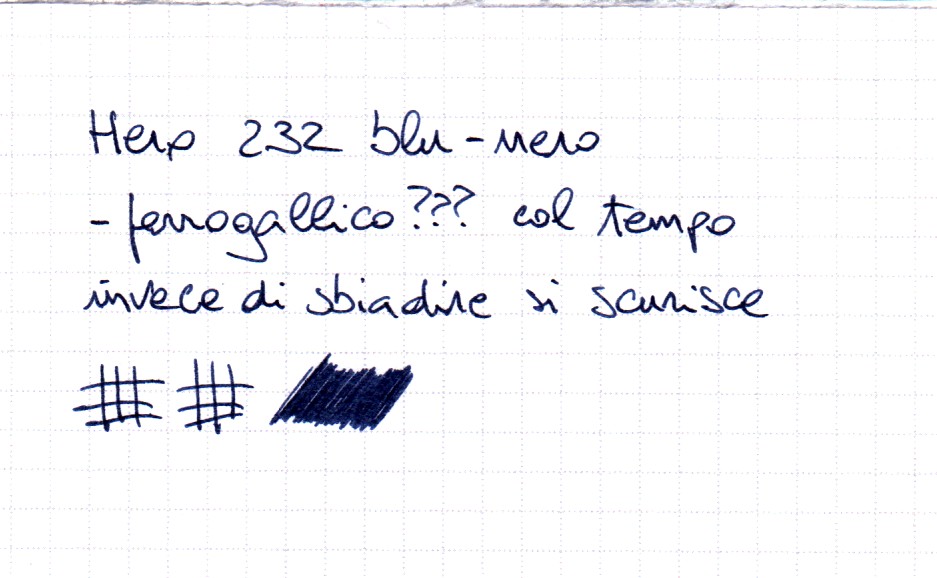 Hero 232 blu-nero
- ferrogallico??? col tempo
invece di sbiadire si scurisce